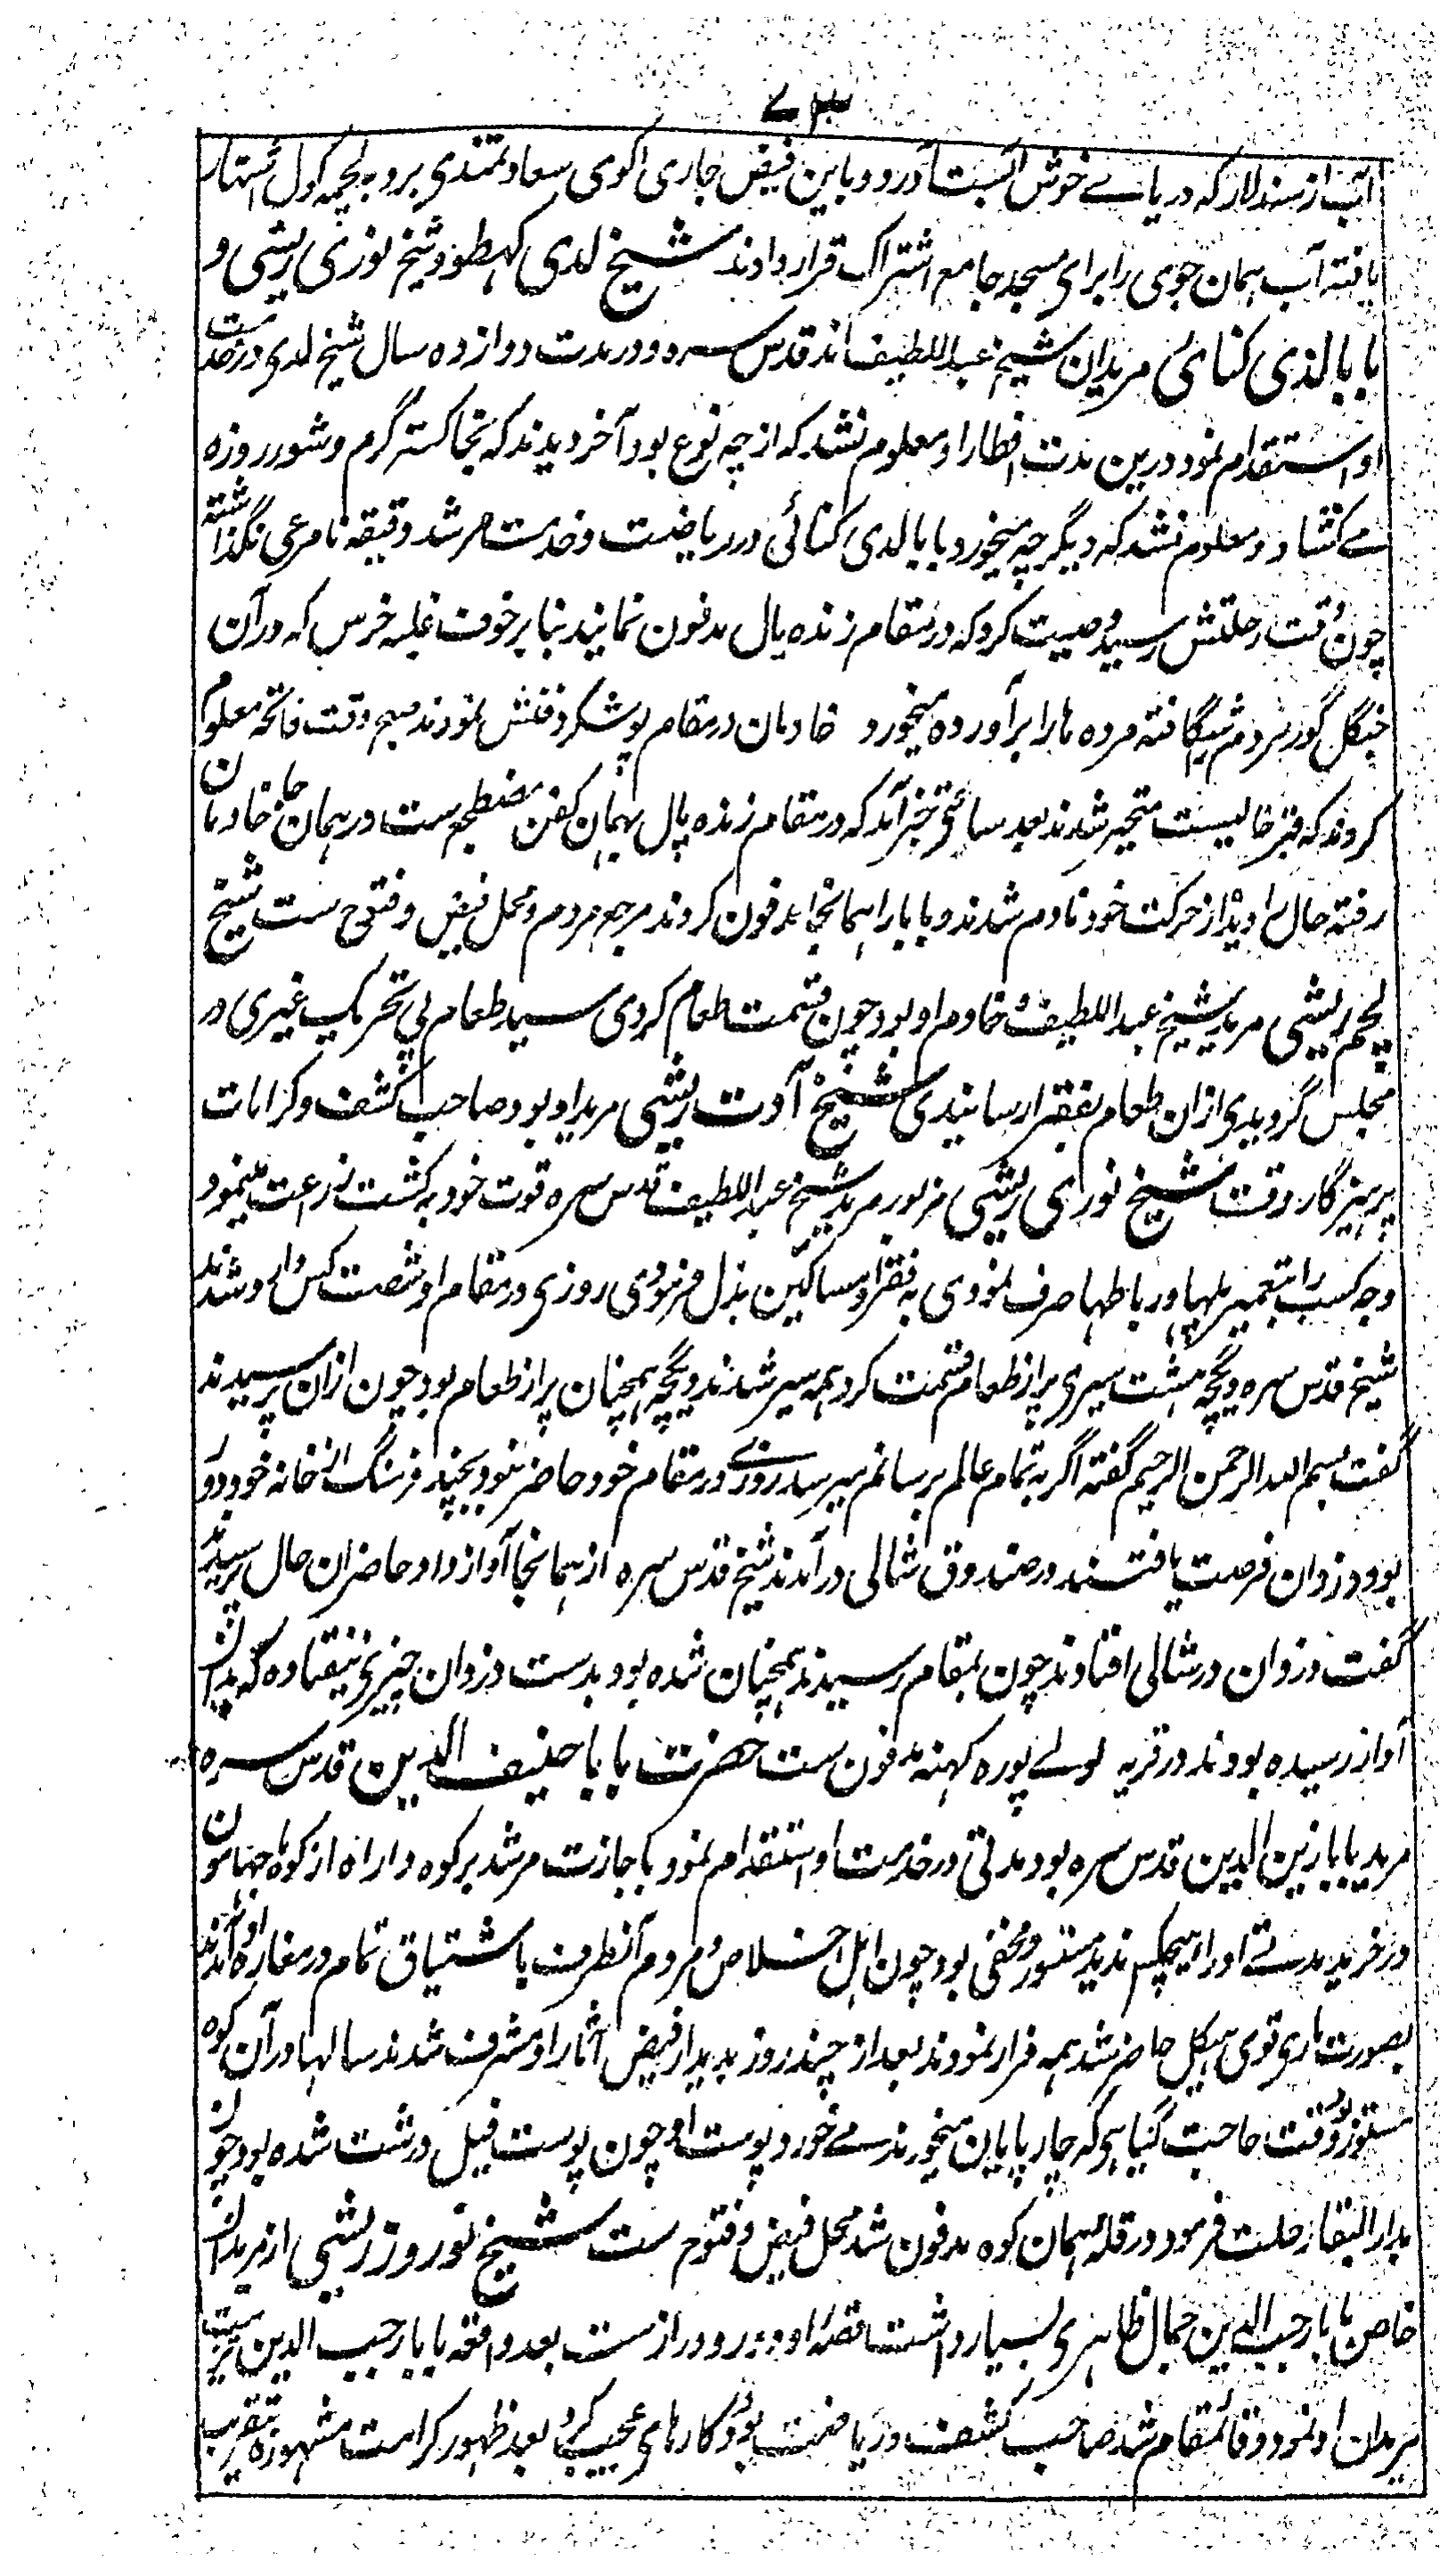 ۷۳
آب از سندلار که دریاے خوش است آورد و باین فیض جاری گوی سعادتمندی برد و به لچمه کول اشتهار
یافته آب همان جوی را برای مسجد جامع اشتراک قرار دادند شیخ لدی کهطو و شیخ نوری ریشی و
بابا لدی کنائی مریدان شیخ عبد اللطیف اند قدس سره و در مدت دوازده سال شیخ لدی در خدمت
او استقدام نمود درین مدت افطار او معلوم نشد که از چه نوع بود آخر دیدند که بخاکستر گرم و شور روزه
مے کشاد و معلوم نشد که دیگر چه میخورد بابا لدی کنائی در ریاضت و خدمت مرشد دقیقه نامرعی نگذاشته
چون وقت رحلتش رسید وصیت کرد که در مقام زنده پال مدفون نمایند بنابر خوف غلبه خرس که در آن
جنگل گور مردم شگافته مرده ها را برآورده میخورد خادمان در مقام پوشکر دفنش نمودند صبح وقت فاتحه معلوم
کردند که قبر خالیست متحیر شدند بعد ساعتی خبر آمد که در مقام زنده پال بهمان کفن مضطجع ست در همان جا خادمان
رفته حال او دیده از حرکت خود نادم شدند و بابا را همانجا مدفون کردند مرجع مردم و محل فیض و فتوح ست شیخ
لچم ریشی مرید شیخ عبد اللطیف خادم او بود چون قسمت طعام کردی سبد طعام بی تحریک غیری در
مجلس گردیدی ازان طعام بفقرا رسانیدی شیخ آوت ریشی مرید او بود صاحب کشف و کرامات
پرهیزگار وقت شیخ نوری ریشی مزبور مرید شیخ عبد اللطیف قدس سره قوت خود به کشت زراعت مینمود
وجه کسب را بتعمیر پلها و رباطها صرف نمودی به فقرا و مساکین بذل فرمودی روزی در مقام او شصت کس وارد شدند
شیخ قدس سره دیگچه هشت سیری پر از طعام قسمت کرد همه سیر شدند و دیگچه همچنان پر از طعام بود چون ازان پرسیدند
گفت بسم الله الرحمن الرحیم گفته اگر به تمام عالم برسانم میرسد روزے در مقام خود حاضر نبود بچند فرسنگ از خانه خود دور
بود دزدان فرصت یافتند در صندوق شالی درآمدند شیخ قدس سره از همانجا آواز داد حاضران حال پرسیدند
گفت دزدان در شالی افتادند چون بمقام رسیدند همچنان شده بود بدست دزدان چیزی نیفتاده که بدان
آواز رسیده بودند در قریه لولے پوره کهنه مدفون ست حضرت بابا حنیف الدین قدس سره
مرید بابا زین الدین قدس سره بود مدتی در خدمت او استقدام نمود با جازت مرشد بر کوه داراه از کوه ها
در خزید مدتے او را هیچکس ندید مستور و مخفی بود چون اهل اخلاص و مردم آنطرف باشتیاق تمام در مغاره او آمدند
بصورت ماری قوی هیکل حاضر شد همه فرار نمودند بعد از چند روز بدیدار فیض آثار او مشرف شدند سالها در آن کوه
مستور بود وقت حاجت گیاهی که چارپایان میخورند مے خورد و پوست او چون پوست فیل درشت شده بود چون
بدار البقا رحلت فرمود در قله همان کوه مدفون شد محل فیض و فتوح ست شیخ نوروز ریشی از مریدان
خاص بابا رجب الدین جمال ظاهری بسیار داشت قصه او دور و دراز ست بعد واقعه بابا رجب الدین تربیت
مریدان او نمود و قائمقام شد صاحب کشف و ریاضت بود و کارهای عجیب کرد بعد ظهور کرامت مشهوره بتقریب